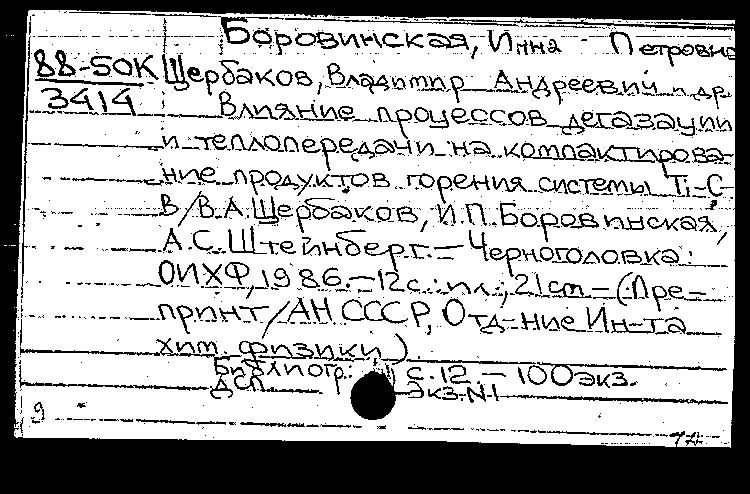 Боровинская, Инна Петровна
88-50К Щербаков, Владимир Андреевич и др.
3414
Влияние процессов дегазации
и теплопередачи на компактирова-
ние продуктов горения системы Ti-C
В/В.А.Щербаков, И.П.Боровинская,
А.С.Штейнберг. – Черноголовка:
ОИХФ, 1986. – 12с.: ил.; 21см – (Пре-
принт/АН СССР, Отд-ние Ин-та
хим. физики)
Библиогр.: с.12. – 100экз.
ДСП Экз.N1
9